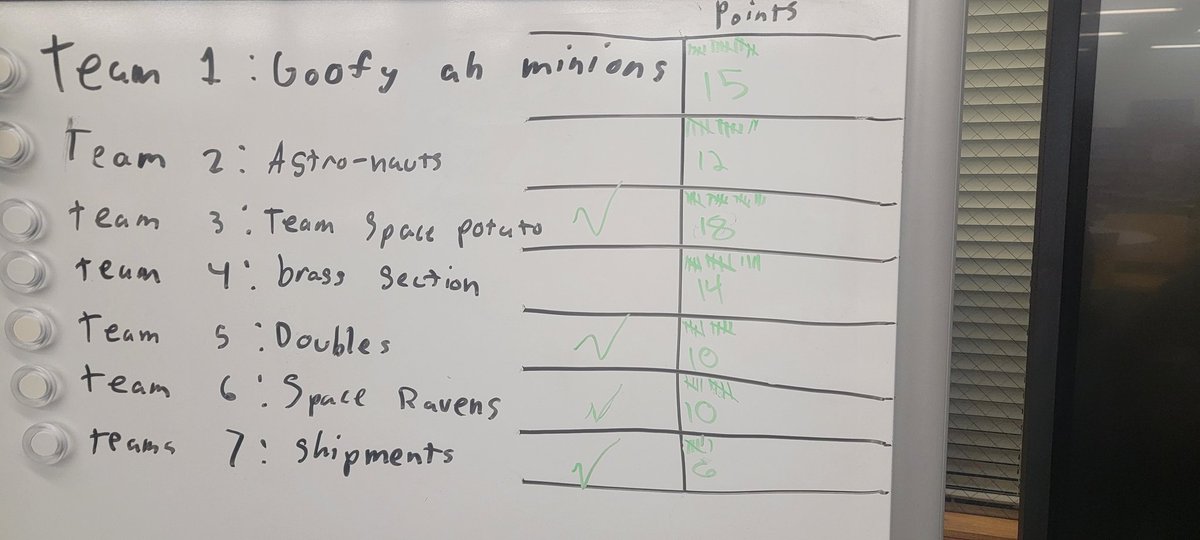 Points
Team 1 : Goofy ah minions 15
Team 2 : Astro-nauts 12
team 3 : Team Space potato ✓ 18
team 4 : brass section 14
Team 5 : Doubles ✓ 10
team 6 : Space Ravens ✓ 10
teams 7 : shipments ✓ 6